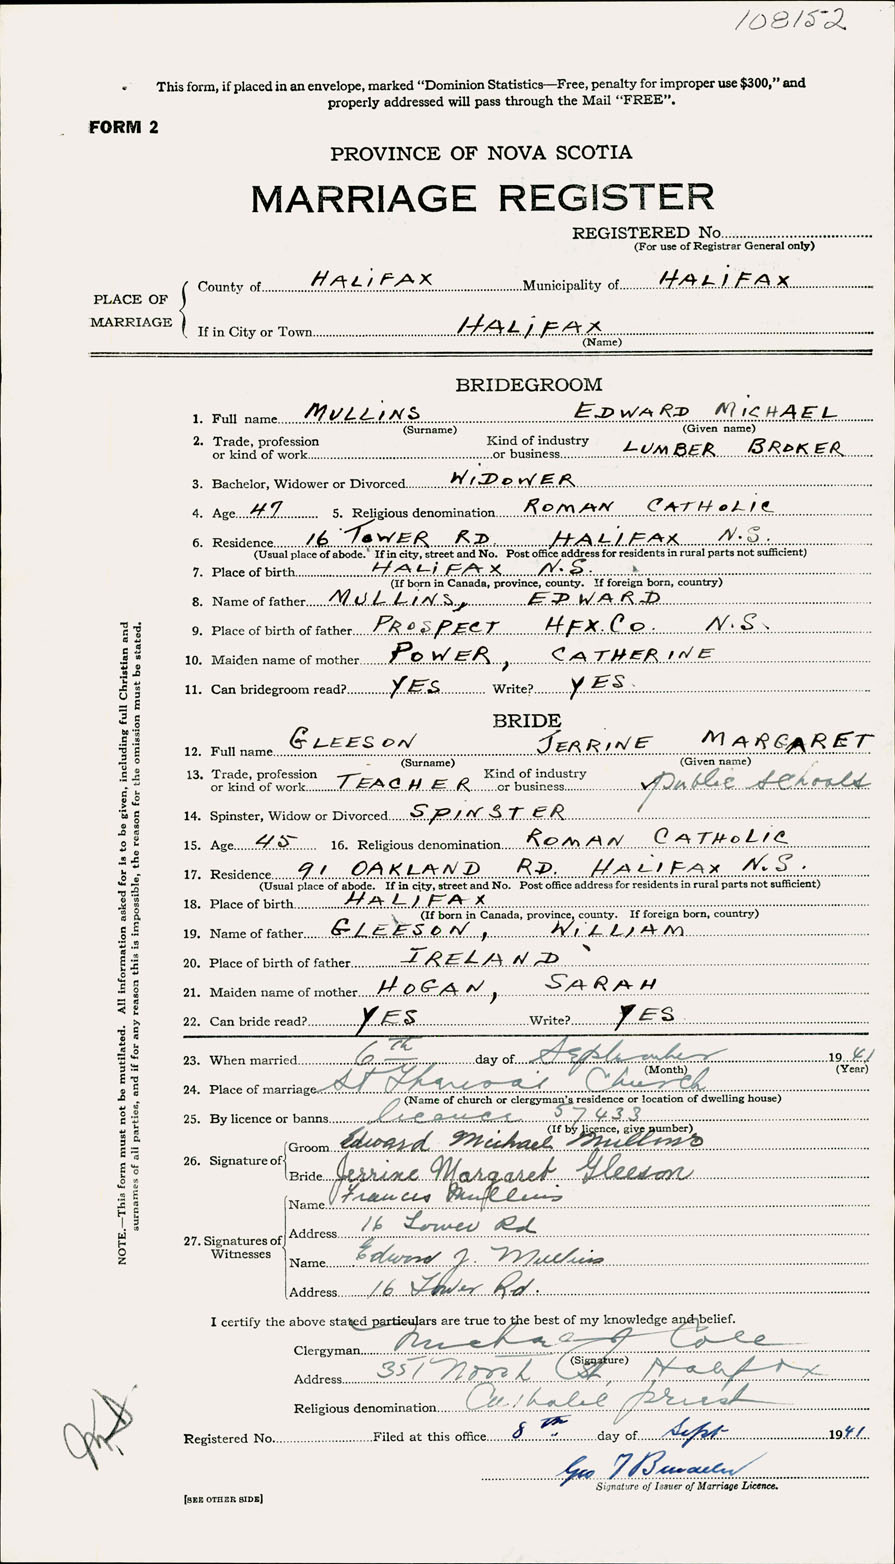 108152
This form, if placed in an envelope, marked "Dominion Statistics—Free, penalty for improper use $300," and
properly addressed will pass through the Mail "FREE".
FORM 2
PROVINCE OF NOVA SCOTIA
MARRIAGE REGISTER
REGISTERED No.
(For use of Registrar General only)
PLACE OF MARRIAGE
County of HALIFAX Municipality of HALIFAX
If in City or Town HALIFAX
(Name)
BRIDEGROOM
1. Full name MULLINS EDWARD MICHAEL
(Surname) (Given name)
2. Trade, profession or kind of work Kind of industry or business LUMBER BROKER
3. Bachelor, Widower or Divorced WIDOWER
4. Age 47 5. Religious denomination ROMAN CATHOLIC
6. Residence 16 TOWER RD HALIFAX N.S.
(Usual place of abode. If in city, street and No. Post office address for residents in rural parts not sufficient)
7. Place of birth HALIFAX N.S.
(If born in Canada, province, county. If foreign born, country)
8. Name of father MULLINS, EDWARD
9. Place of birth of father PROSPECT HFX.CO. N.S.
10. Maiden name of mother POWER, CATHERINE
11. Can bridegroom read? YES Write? YES.
BRIDE
12. Full name GLEESON JERRINE MARGARET
(Surname) (Given name)
13. Trade, profession or kind of work TEACHER Kind of industry or business public schools
14. Spinster, Widow or Divorced SPINSTER
15. Age 45 16. Religious denomination ROMAN CATHOLIC
17. Residence 91 OAKLAND RD. HALIFAX N.S.
(Usual place of abode. If in city, street and No. Post office address for residents in rural parts not sufficient)
18. Place of birth HALIFAX
(If born in Canada, province, county. If foreign born, country)
19. Name of father GLEESON, WILLIAM
20. Place of birth of father IRELAND
21. Maiden name of mother HOGAN, SARAH
22. Can bride read? YES Write? YES
23. When married 6th day of September 1941
(Month) (Year)
24. Place of marriage St Church
(Name of church or clergyman's residence or location of dwelling house)
25. By licence or banns licence 57433
(If by licence, give number)
26. Signature of
Groom Edward Michael Mullins
Bride Jerrine Margaret Gleeson
27. Signatures of Witnesses
Name Frances Mullins
Address 16 Tower Rd
Name Edward J. Mullins
Address 16 Tower Rd.
I certify the above stated particulars are true to the best of my knowledge and belief.
Clergyman Michael J Cole
(Signature)
Address 351 North St, Halifax
Religious denomination Catholic Priest
Registered No. Filed at this office 8th day of Sept 1941
Geo T
Signature of Issuer of Marriage Licence.
[SEE OTHER SIDE]
NOTE.—This form must not be mutilated. All information asked for is to be given, including full Christian and
surnames of all parties, and if for any reason this is impossible, the reason for the omission must be stated.